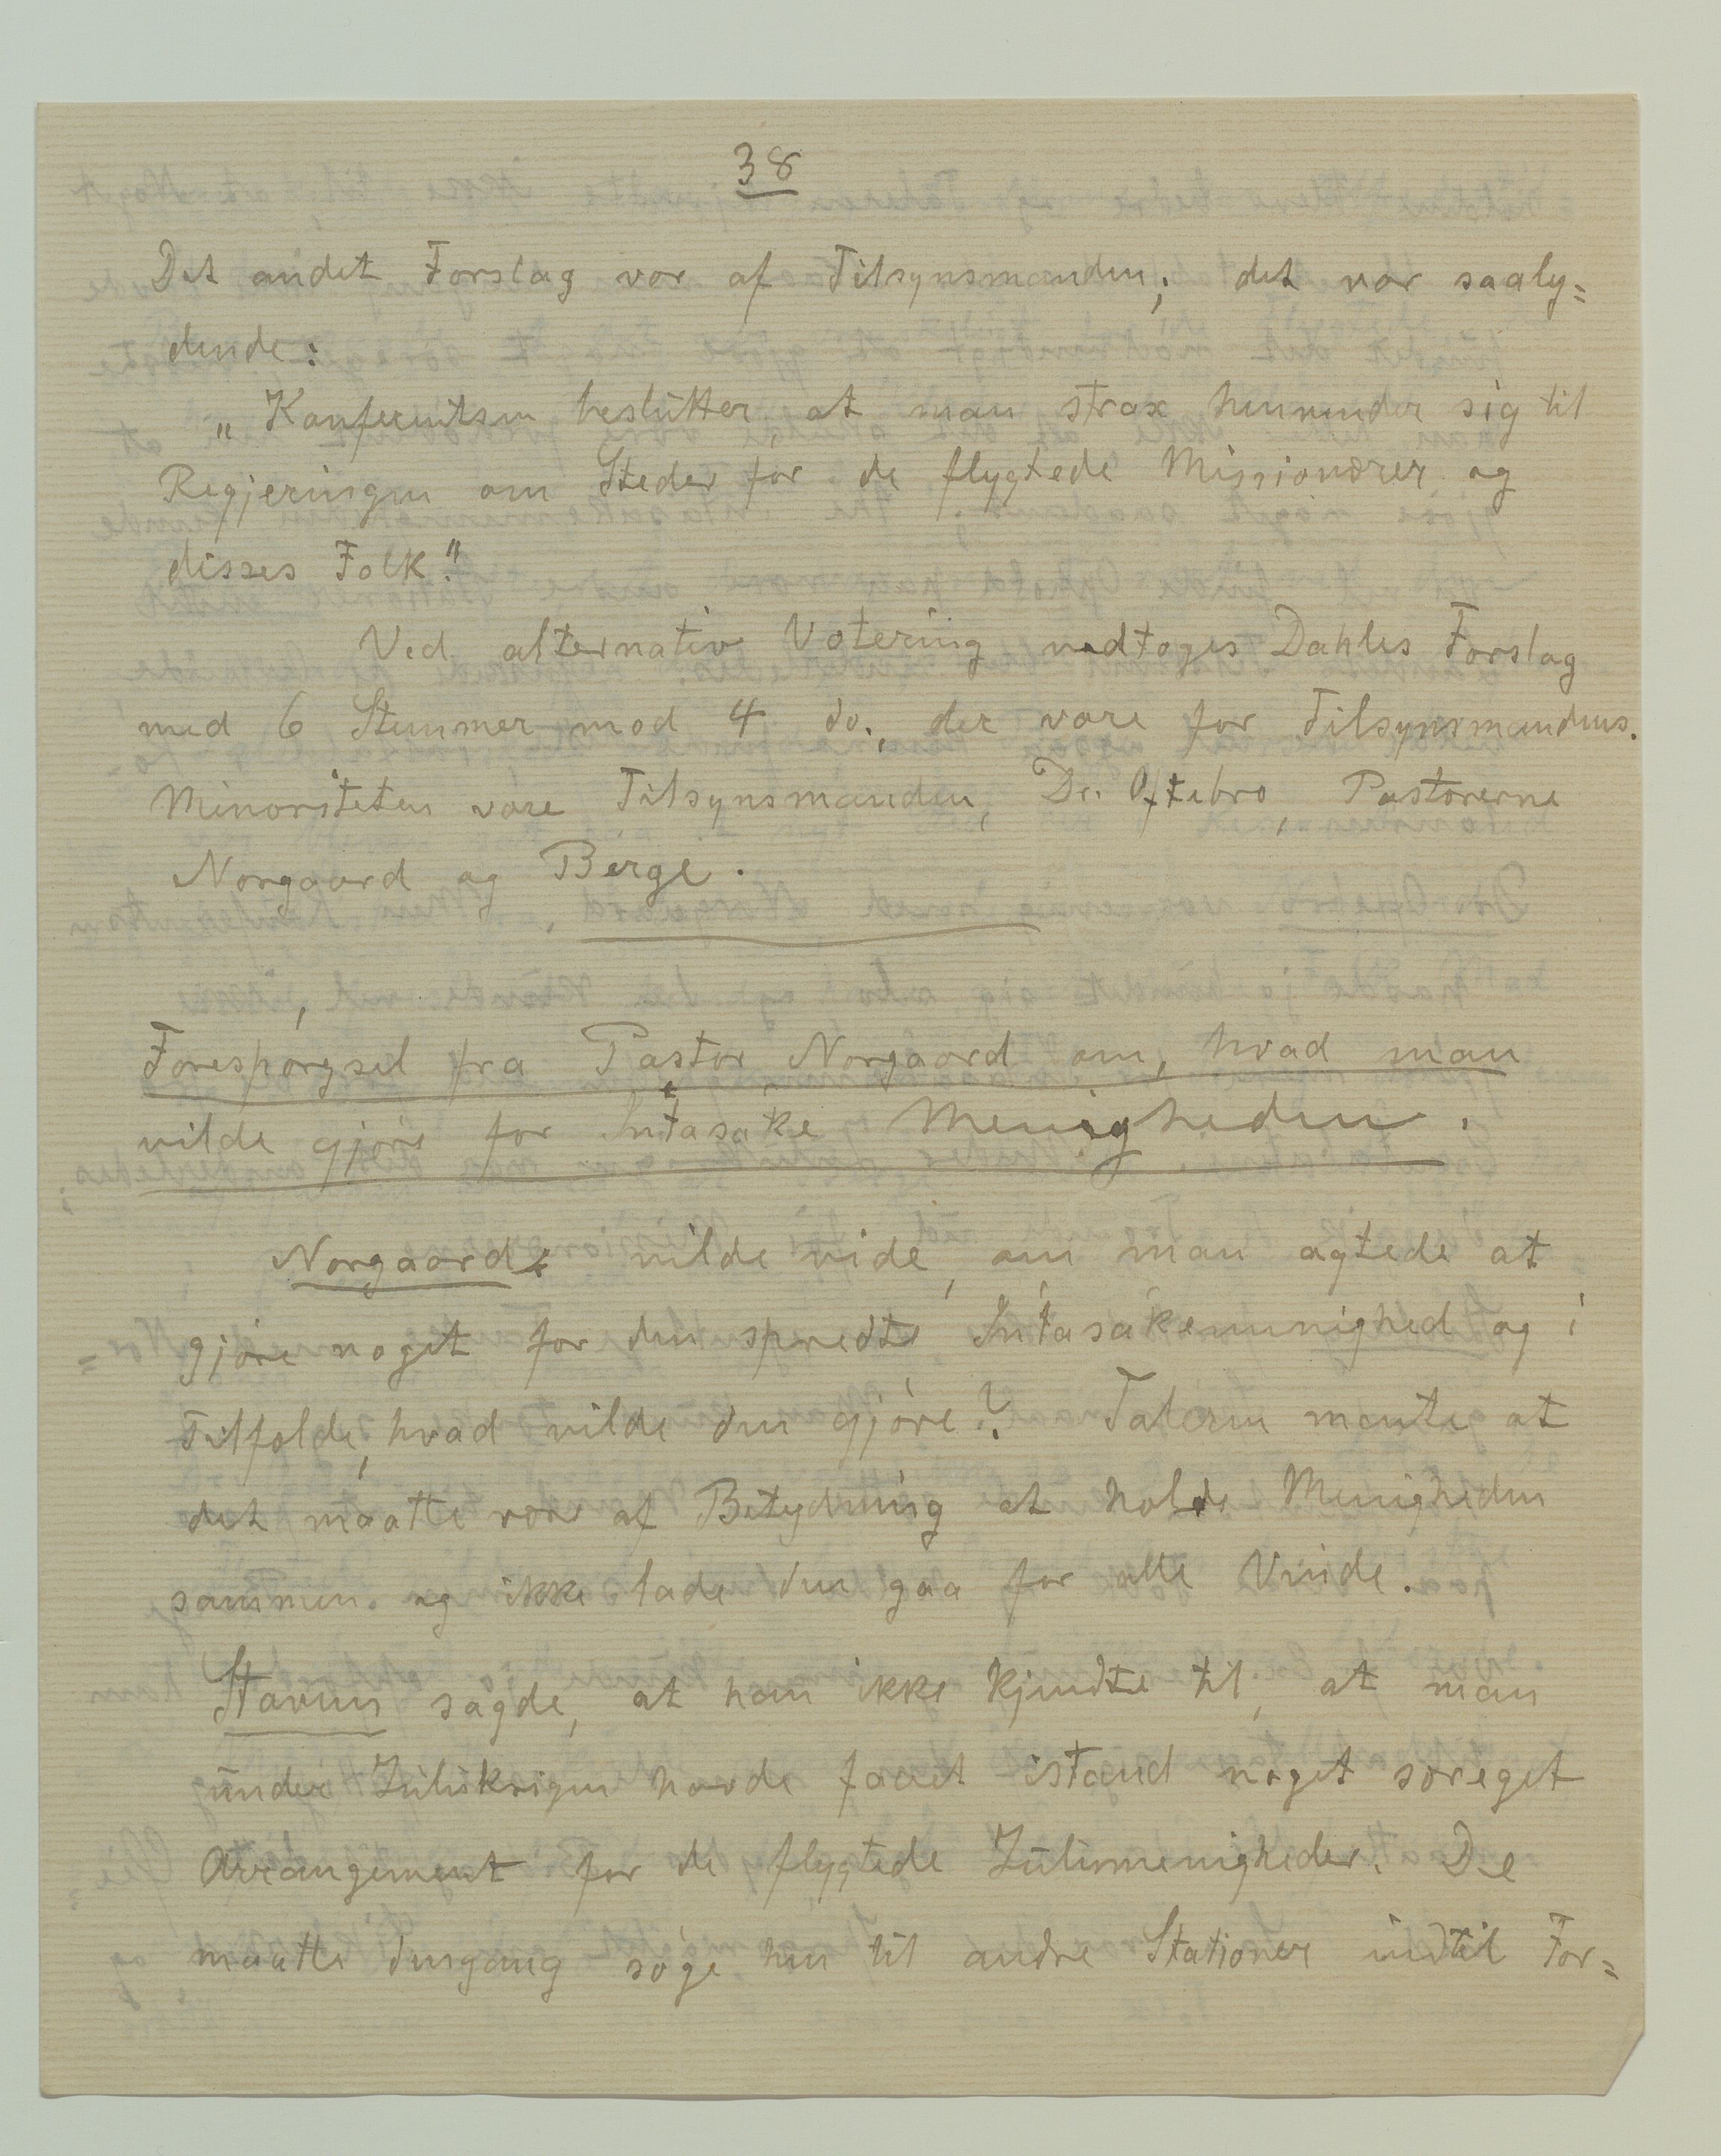 38
Det andet Forslag var af Tilsynsmanden; det var saaly=
dende:
„Konferentsen beslutter at man strax henvender sig til
Regjeringen om Steder for de flygtede Missionærer og
disses Folk."
Ved alternativ Votering vedtoges Dahles Forslag
med 6 Stemmer mod 4 do., der vare for Tilsynsmandens.
Minoriteten vare Tilsynsmanden, Dr. Oftebro, Pastorerne
Norgaard og Berge.
Forespørgsel fra Pastor Norgaard om, hvad man
vilde gjøre for Intasake Menigheden.
Norgaard vilde vide, om man agtede at
gjøre noget for den spredte Intasakemenighed og i
Tilfælde, hvad vilde den gjøre? Taleren mente at
det maatte være af Betydning at holde Menigheden
sammen og ikke lade den gaa for alle Vinde.
Stavem sagde, at han ikke kjendte til, at man
under Zulukrigen havde faaet istand noget særeget
Arrangement for de flygtede Zulumenigheder. De
maatte dengang søge hen til andre Stationer indtil For=